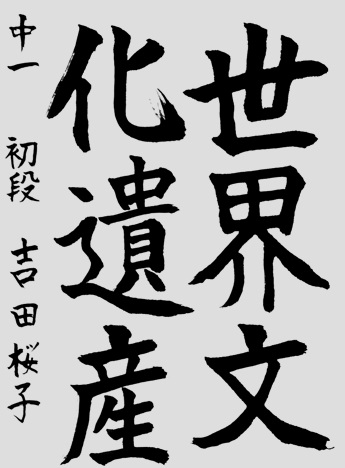 世界文
化遺産
中一 初段 吉田桜子